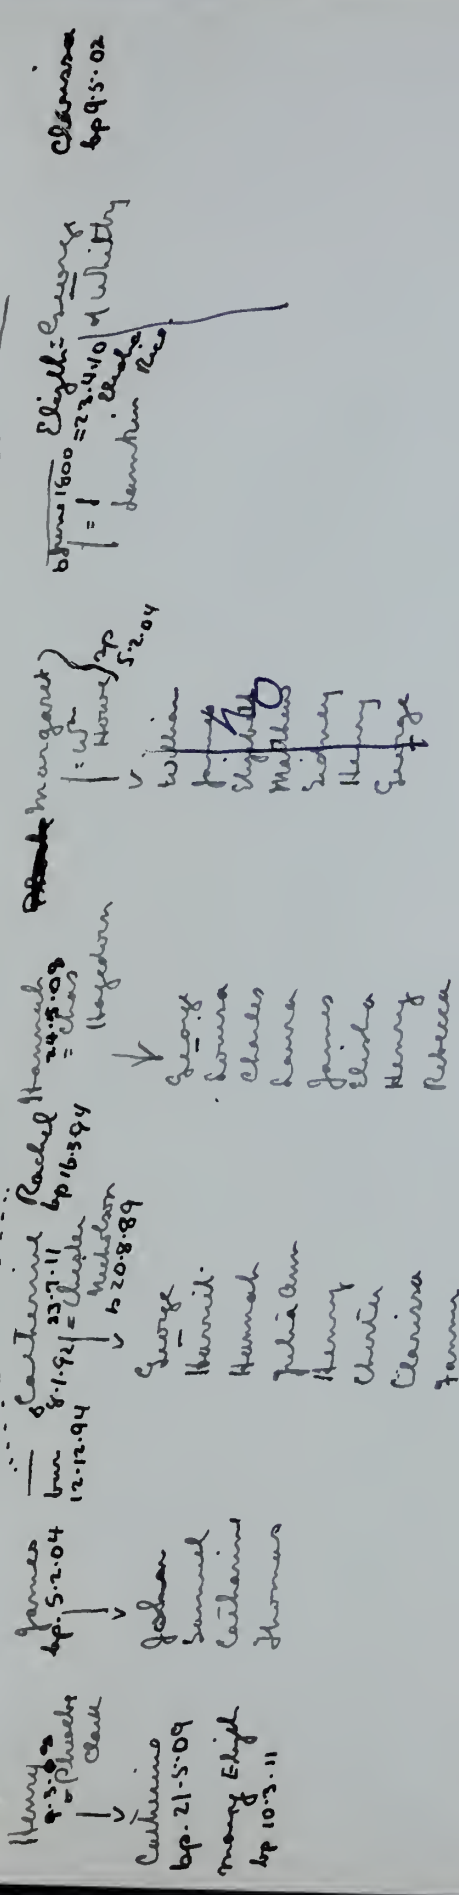 Henry
9.3.08
= Phoebe
Clark
Catherine
bp. 21.5.09
Mary Elizth
bp 10.3.11
James
bp. 5.2.04
John
Samuel
Catharine
Thomas
bur
12.12.94
Catherine
8.1.92 23.7.11
= Chester
Nicholson
b 20.8.89
George
Harriet
Hannah
Julia Ann
Henry
Chester
Clarissa
Fanny
Rachel
bp 16.3.94
Hannah
24.5.08
= Chas
Hagedorn
George
Louisa
Charles
Laura
James
Elisha
Henry
Rebecca
Margaret
= Wm
Howe
bp
5.2.04
William
James
Elizabeth
Matthew
Sidney
Henry
George
b June 1800
Elizth = George
= 23.4.40 of Whitby
= 1 Elisha
Lumkin Rice
Clarissa
bp 9.5.02